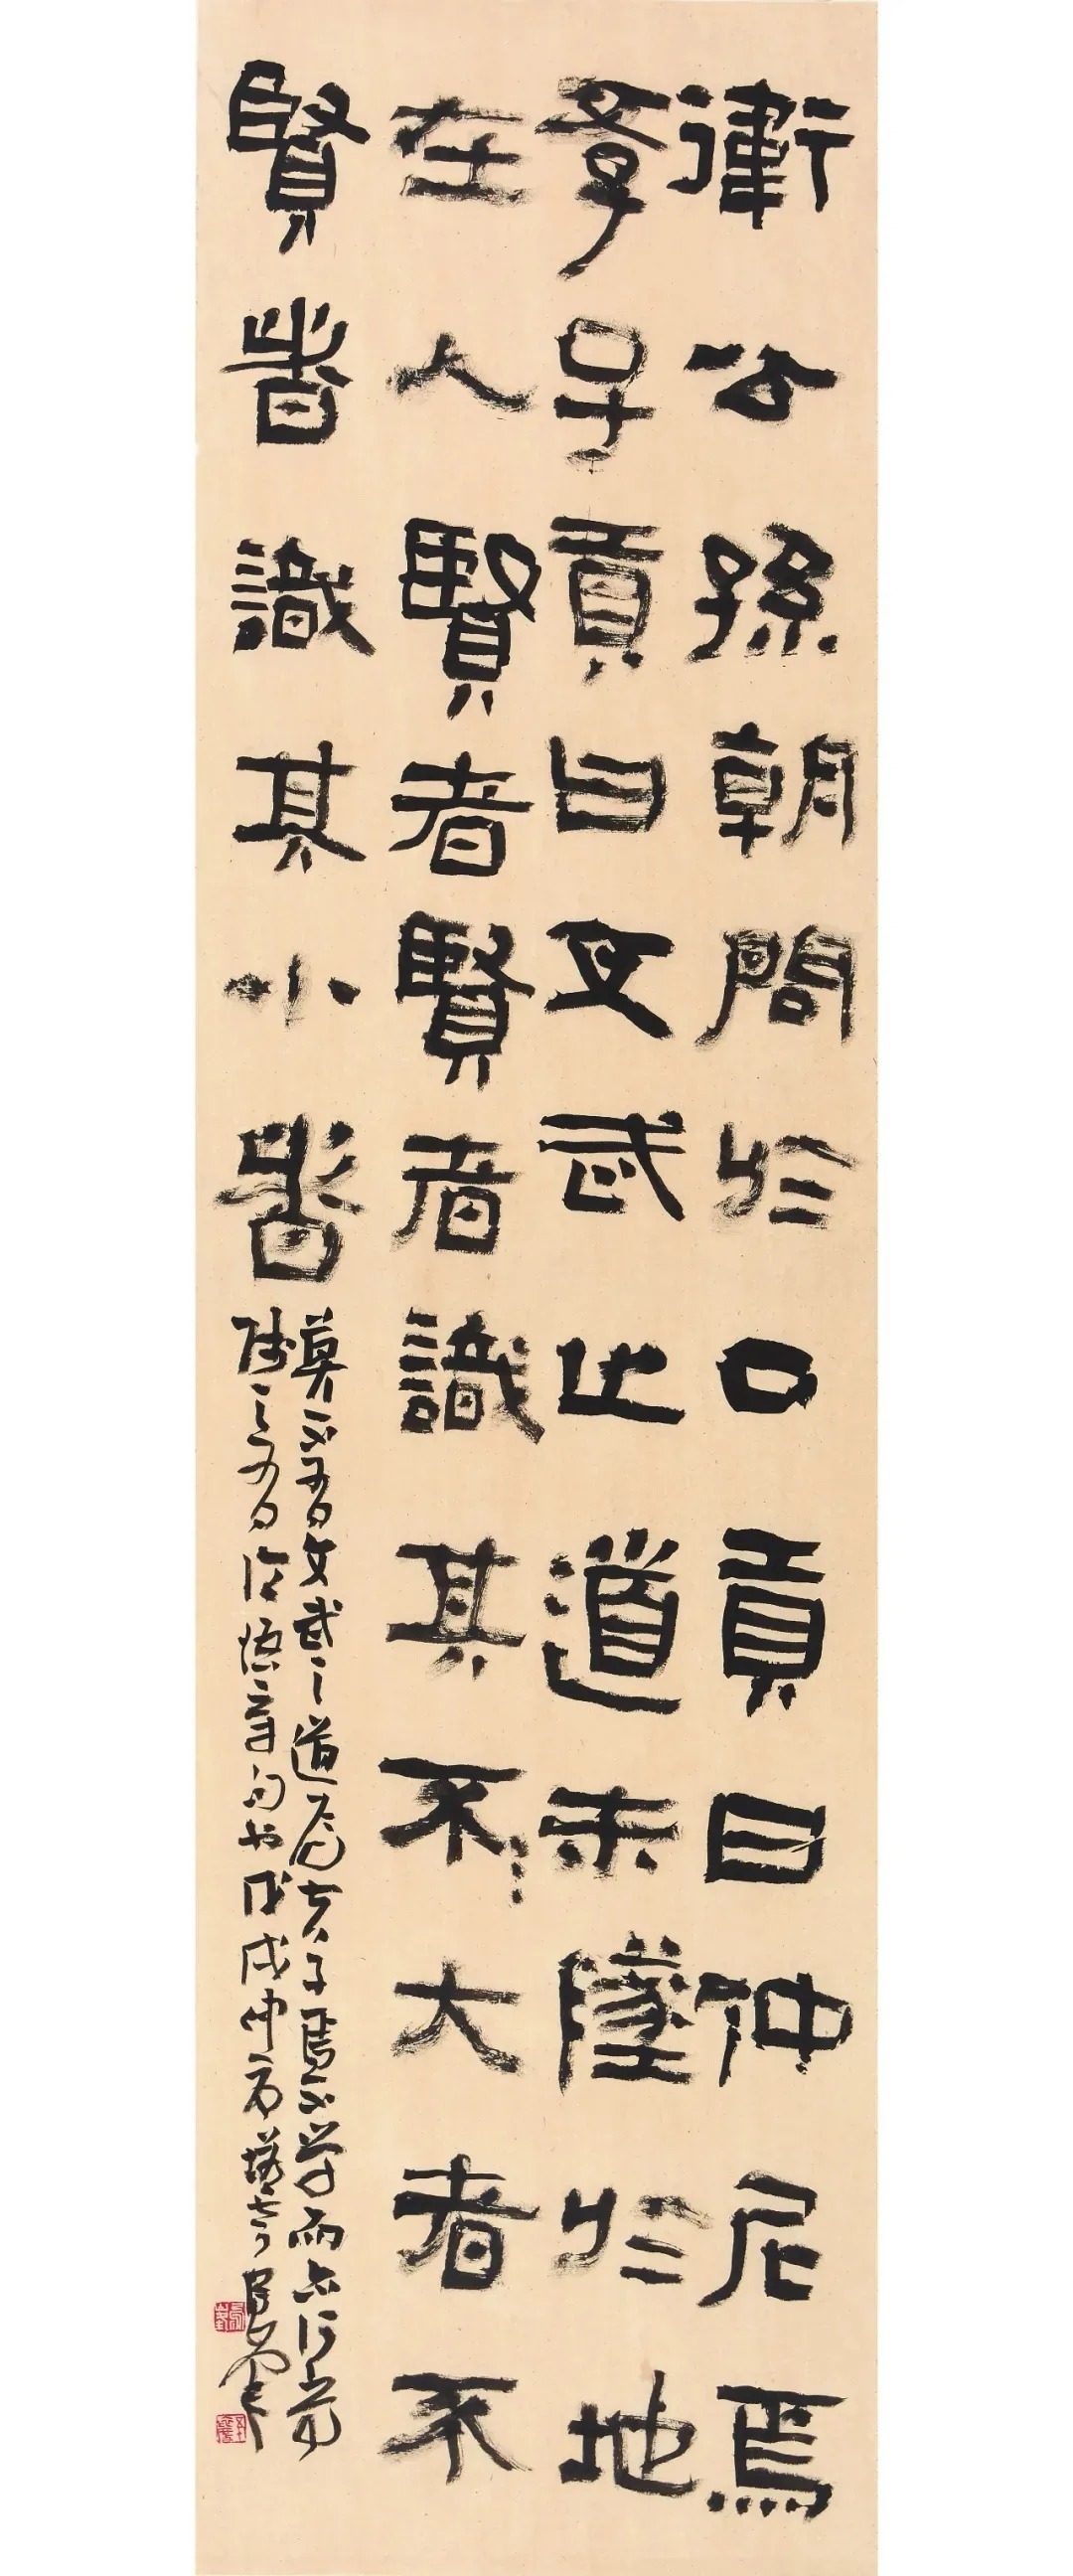 衛公孫朝問於口貢曰仲尼焉
學子貢曰文武之道未墜於地
在人賢者賢者識其不大者不
賢者識其小者
莫不有文武之道焉夫子焉不学而亦何常
师之有论语章句也戊戌中秋